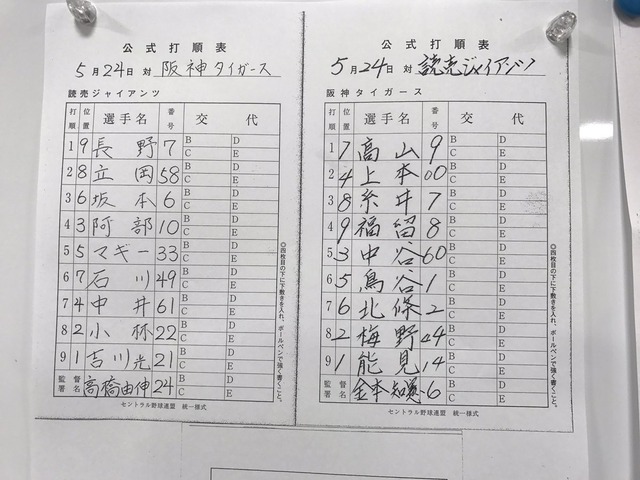 公式打順表
5月24日 対 阪神タイガース
読売ジャイアンツ
打順 位置 選手名 番号 交代
1 9 長野 7 B D C E
2 8 立岡 58 B D C E
3 6 坂本 6 B D C E
4 3 阿部 10 B D C E
5 5 マギー 33 B D C E
6 7 石川 49 B D C E
7 4 中井 61 B D C E
8 2 小林 22 B D C E
9 1 吉川光 21 B D C E
監督署名 高橋由伸 24 B D C E
セントラル野球連盟 統一様式
◎四枚目の下に下敷きを入れ、ボールペンで強く書くこと。
公式打順表
5月24日 対 読売ジャイアンツ
阪神タイガース
打順 位置 選手名 番号 交代
1 7 高山 9 B D C E
2 4 上本 00 B D C E
3 8 糸井 7 B D C E
4 9 福留 8 B D C E
5 3 中谷 60 B D C E
6 5 鳥谷 1 B D C E
7 6 北條 2 B D C E
8 2 梅野 44 B D C E
9 1 能見 14 B D C E
監督署名 金本知憲 6 B D C E
セントラル野球連盟 統一様式
◎四枚目の下に下敷きを入れ、ボールペンで強く書くこと。